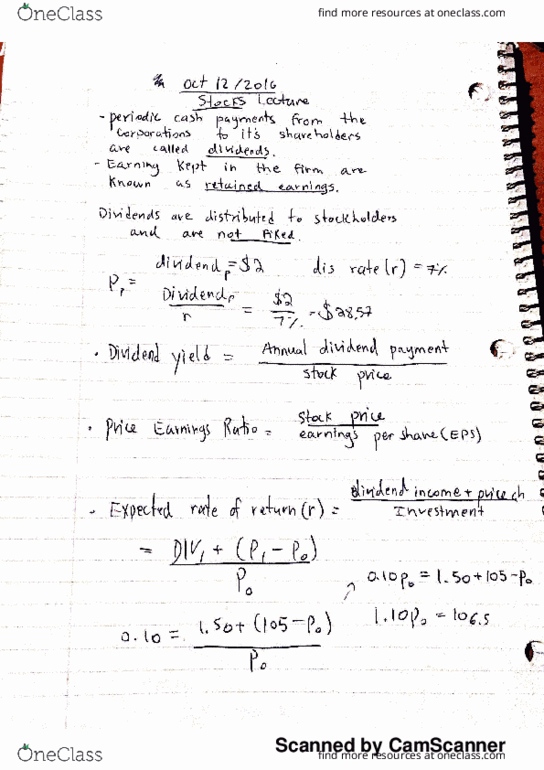 OneClass
find more resources at oneclass.com
Oct 12/2016
Stocks Lecture
- periodic cash payments from the
corporations to it's shareholders
are called dividends.
- Earning kept in the firm are
known as retained earnings.
Dividends are distributed to stockholders
and are not fixed.
dividendp = $2 dis rate(r) = 7%
Pp = Dividendp / r = $2 / 7% = $28.57
• Dividend yield = Annual dividend payment
stock price
• Price Earnings Ratio = stock price
earnings per share (EPS)
- Expected rate of return (r) = dividend income + price ch
Investment
= DIV1 + (P1 - P0)
P0
0.10P0 = 1.50 + 105 - P0
1.10P0 = 106.5
0.10 = 1.50 + (105 - P0)
P0
Scanned by CamScanner
OneClass
find more resources at oneclass.com